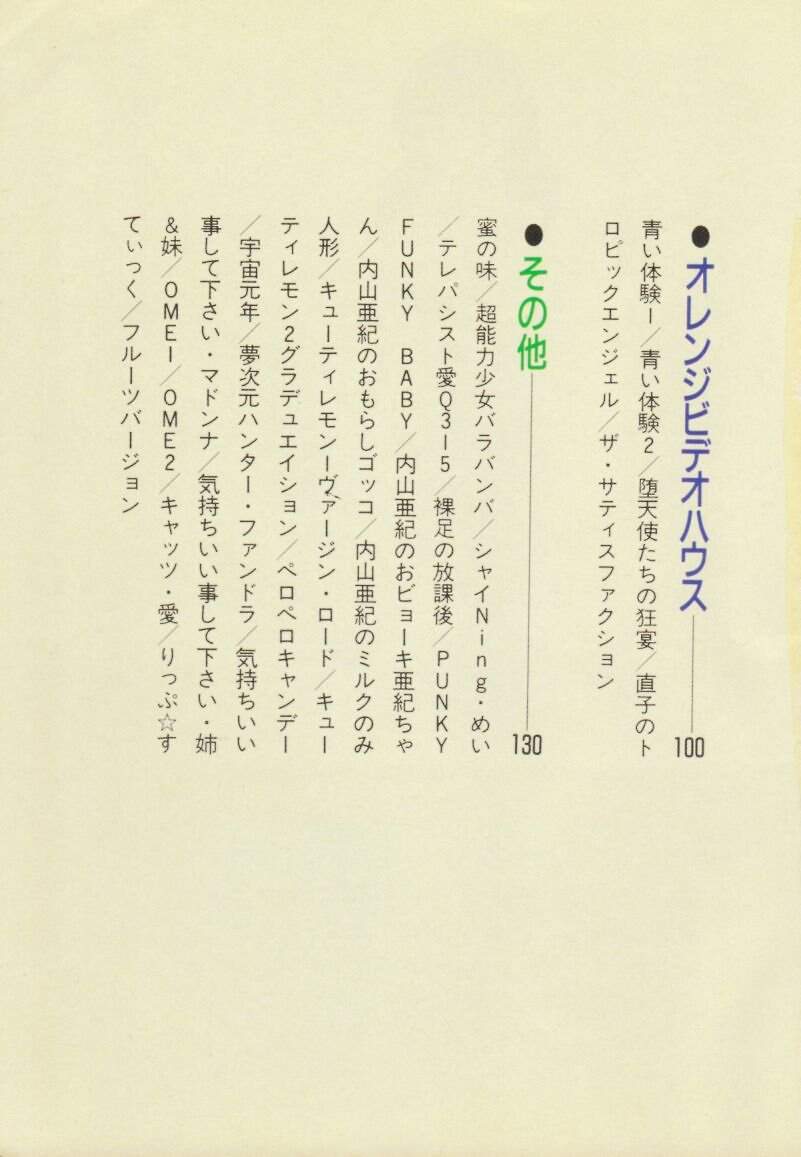 ●オレンジビデオハウス――100
青い体験1／青い体験2／堕天使たちの狂宴／直子のト
ロピックエンジェル／ザ・サティスファクション
●その他――130
蜜の味／超能力少女バラバンバ／シャイNing・めい
／テレパシスト愛Q315／裸足の放課後／PUNKY
FUNKY BABY／内山亜紀のおビョーキ亜紀ちゃ
ん／内山亜紀のおもらしゴッコ／内山亜紀のミルクのみ
人形／キューティレモン1ヴァージン・ロード／キュー
ティレモン2グラデュエイション／ペロペロキャンデー
／宇宙元年／夢次元ハンター・ファンドラ／気持ちいい
事して下さい・マドンナ／気持ちいい事して下さい・姉
&妹／OME1／OME2／キャッツ・愛／りっぷ☆す
てぃっく／フルーツバージョン